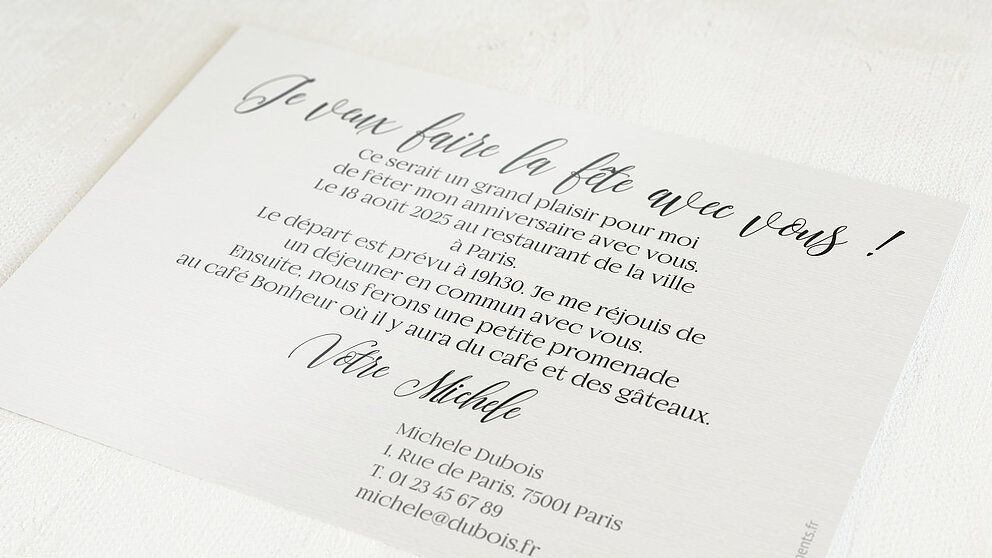 Je veux faire la fête avec vous !
Ce serait un grand plaisir pour moi
de fêter mon anniversaire avec vous.
Le 18 août 2025 au restaurant de la ville
à Paris.
Le départ est prévu à 19h30. Je me réjouis de
un déjeuner en commun avec vous.
Ensuite, nous ferons une petite promenade
au café Bonheur où il y aura du café et des gâteaux.
Votre Michele
Michele Dubois
1. Rue de Paris, 75001 Paris
T. 01 23 45 67 89
michele@dubois.fr